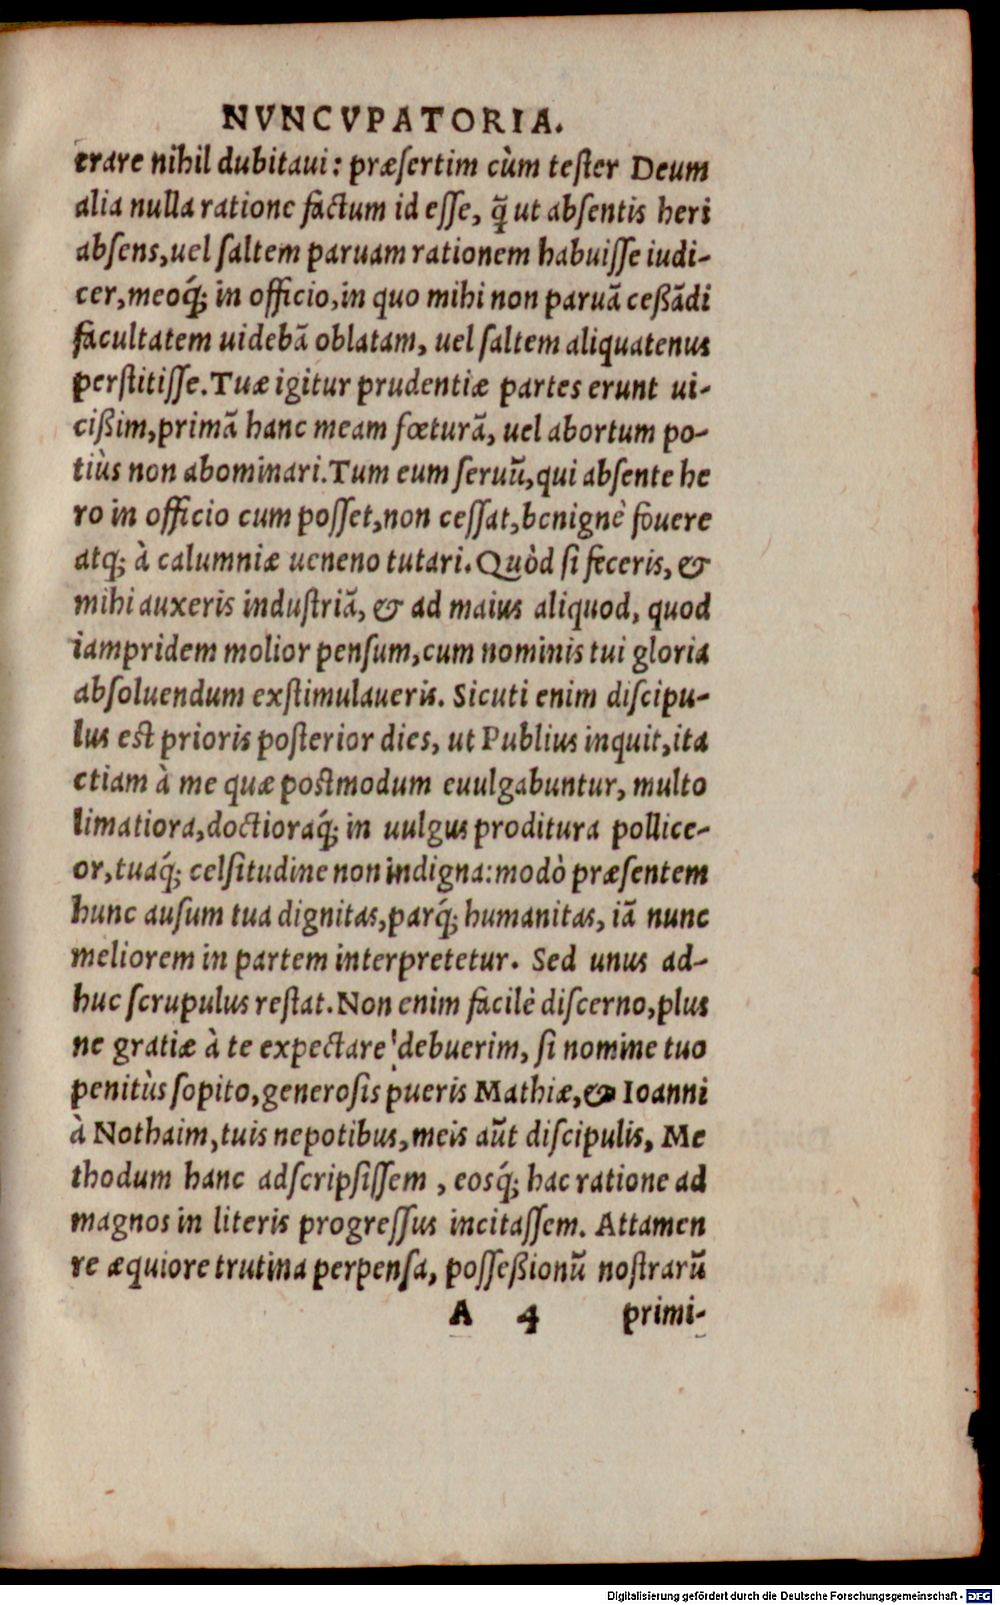 NVNCVPATORIA.
crare nihil dubitaui: præsertim cùm tester Deum
alia nulla ratione factum id esse, q̃ ut absentis heri
absens, uel saltem paruam rationem habuisse iudi-
cer, meoq́; in officio, in quo mihi non paruã ceßãdi
facultatem uidebã oblatam, uel saltem aliquatenus
perstitisse. Tuæ igitur prudentiæ partes erunt ui-
cißim, primã hanc meam fœturã, uel abortum po-
tiùs non abominari. Tum eum seruũ, qui absente he
ro in officio cum posset, non cessat, benignè fouere
atq; à calumniæ ueneno tutari. Quòd si feceris, &
mihi auxeris industriã, & ad maius aliquod, quod
iampridem molior pensum, cum nominis tui gloria
absoluendum exstimulaueris. Sicuti enim discipu-
lus est prioris posterior dies, ut Publius inquit, ita
etiam à me quæ postmodum euulgabuntur, multo
limatiora, doctioraq́; in uulgus proditura pollice-
or, tuaq́; celsitudine non indigna: modò præsentem
hunc ausum tua dignitas, parq́; humanitas, iã nunc
meliorem in partem interpretetur. Sed unus ad-
huc scrupulus restat. Non enim facilè discerno, plus
ne gratiæ à te expectare debuerim, si nomine tuo
penitùs sopito, generosis pueris Mathiæ, & Ioanni
à Nothaim, tuis nepotibus, meis aũt discipulis, Me
thodum hanc adscripsissem, eosq́; hac ratione ad
magnos in literis progressus incitassem. Attamen
re æquiore trutina perpensa, posseßionũ nostrarũ
A 4 primi-
Digitalisierung gefördert durch die Deutsche Forschungsgemeinschaft - DFG